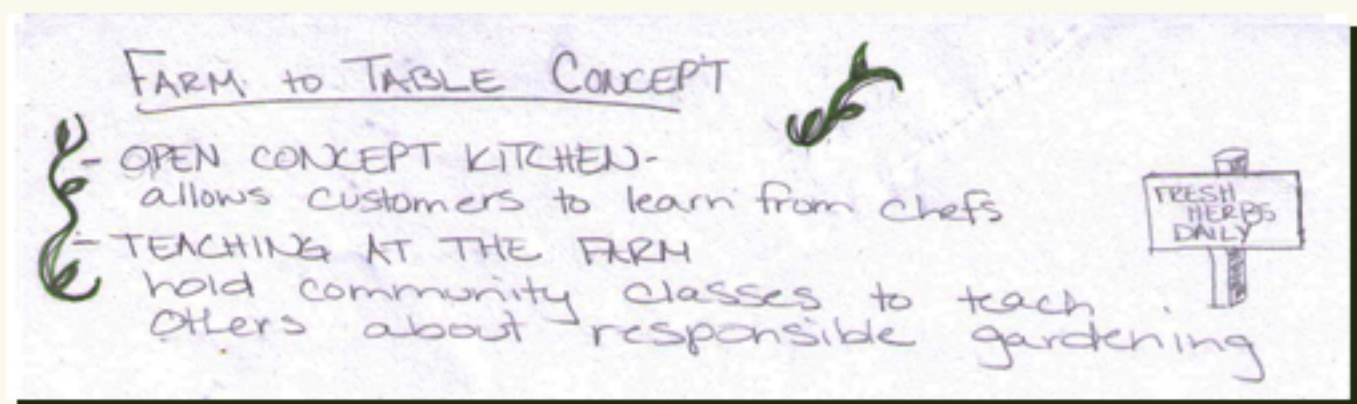 FARM to TABLE CONCEPT
- OPEN CONCEPT KITCHEN-
allows customers to learn from chefs
- TEACHING AT THE FARM
hold community classes to teach
others about responsible gardening
FRESH
HERBS
DAILY